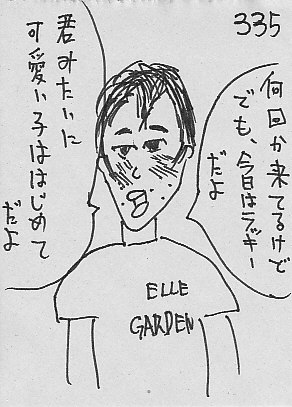 335
何回か来てるけど
でも、今日はラッキー
だよ
君みたいに
可愛い子ははじめて
だよ
ELLE
GARDEN